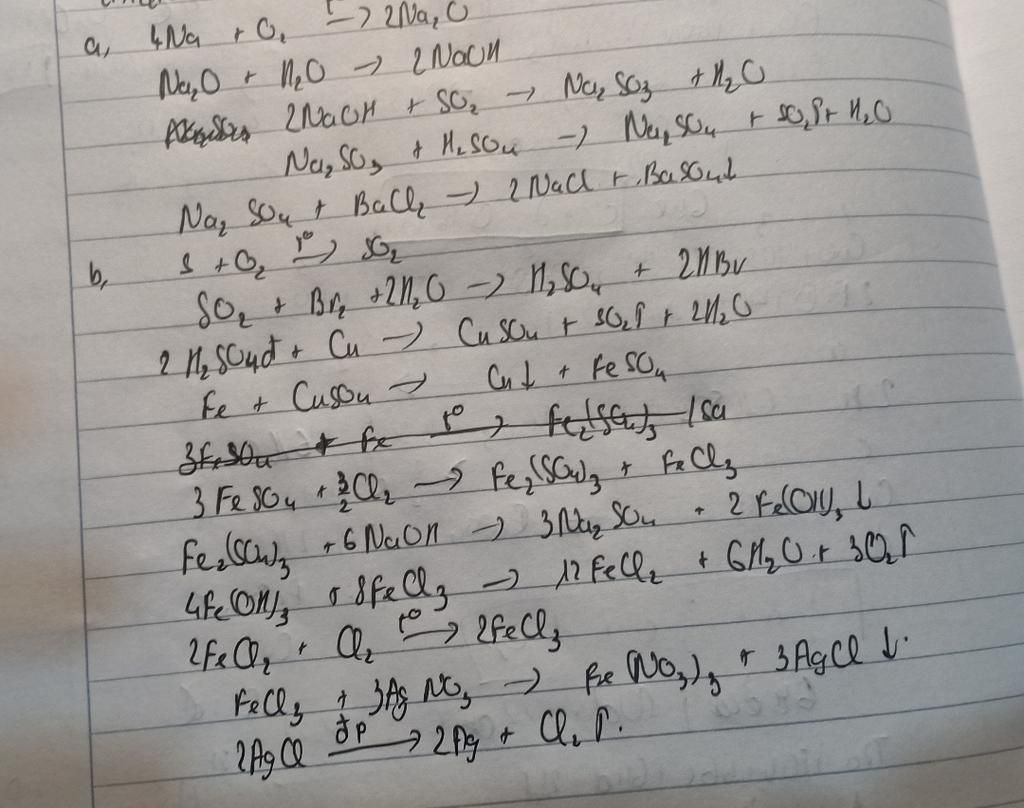 a, 4Na + O₂ t° → 2Na₂O
Na₂O + H₂O → 2NaOH
2NaOH + SO₂ → Na₂SO₃ + H₂O
Na₂SO₃ + H₂SO₄ → Na₂SO₄ + SO₂↑ + H₂O
Na₂SO₄ + BaCl₂ → 2NaCl + BaSO₄↓
b, S + O₂ t° → SO₂
SO₂ + Br₂ + 2H₂O → H₂SO₄ + 2HBr
2H₂SO₄đ + Cu → CuSO₄ + SO₂↑ + 2H₂O
Fe + CuSO₄ → Cu↓ + FeSO₄
3FeSO₄ + Fe t° → Fe₂(SO₄)₃
3FeSO₄ + 3/2Cl₂ → Fe₂(SO₄)₃ + FeCl₃
Fe₂(SO₄)₃ + 6NaOH → 3Na₂SO₄ + 2Fe(OH)₃↓
4Fe(OH)₃ + 8FeCl₃ → 12FeCl₂ + 6H₂O + 3O₂↑
2FeCl₂ + Cl₂ t° → 2FeCl₃
FeCl₃ + 3AgNO₃ → Fe(NO₃)₃ + 3AgCl↓.
2AgCl đp → 2Ag + Cl₂↑.